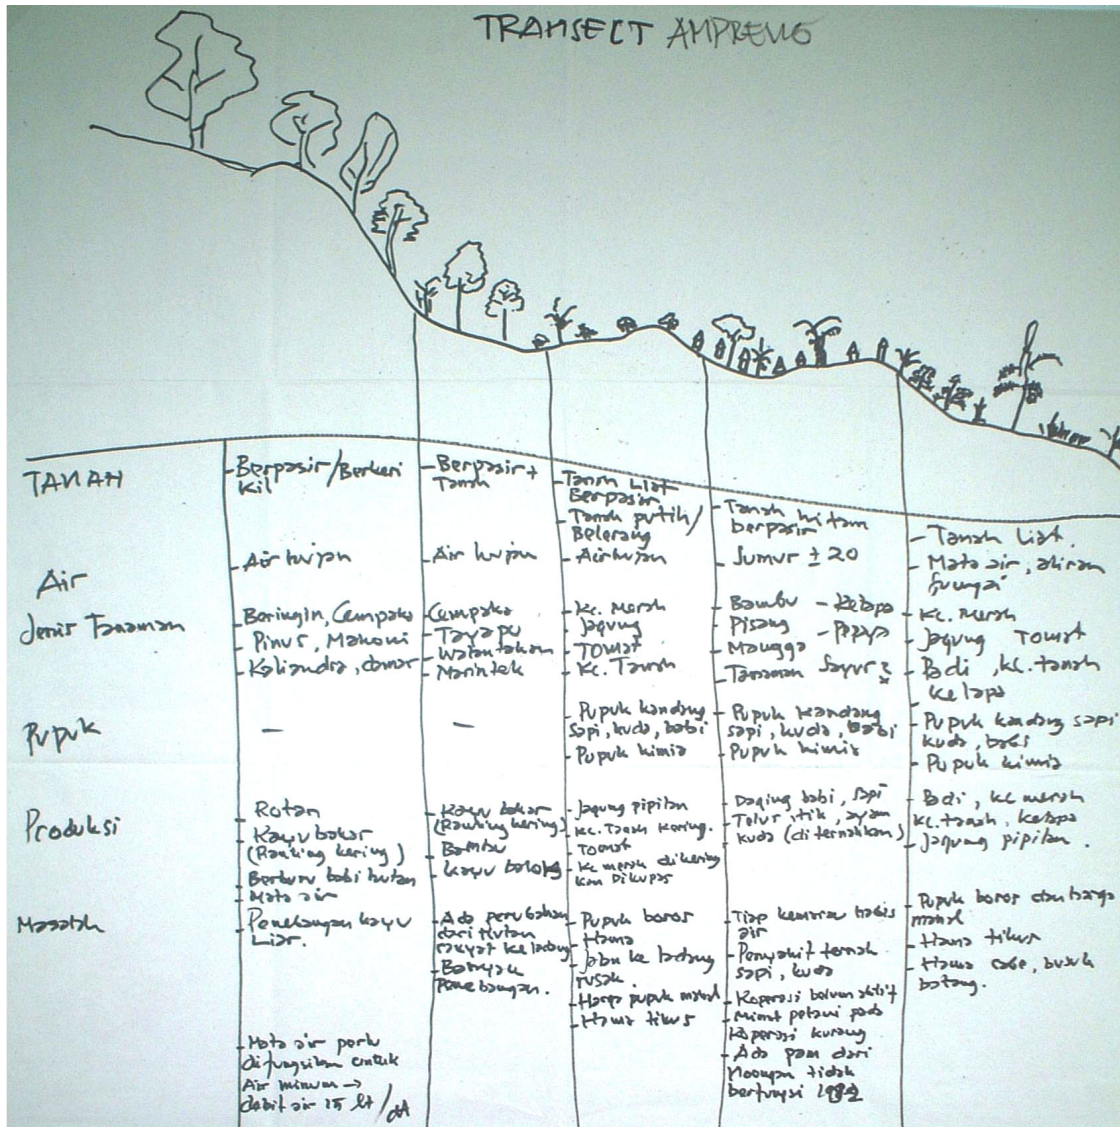 TRANSECT AMPRENG
TANAH
- Berpasir/Berkeri
kil
- Berpasir +
Tanah
- Tanah Liat
Berpasir
- Tanah putih/
Belerang
- Tanah hitam
berpasir
- Tanah Liat.
Air
- Air hujan
- Air hujan
- Air hujan
- Sumur ± 20
- Mata air, aliran
Sungai
Jenis Tanaman
- Beringin, Cempaka
- Pinus, Mahoni
- Kaliandra, damar
- Cempaka
- Tayapu
- Walantakan
- Marintek
- Kc. Merah
- Jagung
- Tomat
- Kc. Tanah
- Bambu - Kelapa
- Pisang - Pepaya
- Mangga
- Tanaman Sayur2
- Kc. Merah
- Jagung Tomat
- Padi, kc. tanah
- Kelapa
Pupuk
-
-
- Pupuk kandang
sapi, kuda, babi
- Pupuk kimia
- Pupuk kandang
sapi, kuda, babi
- Pupuk kimia
- Pupuk kandang sapi
kuda, babi
- Pupuk kimia
Produksi
- Rotan
- Kayu bakar
(Ranking kering)
- Berburu babi hutan
- Mata air
- Kayu bakar
(Ranking kering)
- Bambu
- Kayu
- Jagung pipilan
- Kc. Tanah Kering.
- Tomat
- Kc merah dikering
kan Dikupas
- Daging babi, sapi
- Telur, itik, ayam
- kuda (diternakkan)
- Padi, kc merah
- Kc. tanah, kelapa
- Jagung pipilan.
Masalah
- Penebangan kayu
Liar.
- Mata air perlu
difungsikan untuk
Air minum →
debit air 15 lt/dt
- Ada perubahan
dari Hutan
rakyat ke ladang
- Banyak
penebangan.
- Pupuk boros
- Hama
- Jalan ke ladang
rusak.
- Harga pupuk mahal
- Hama tikus
- Tiap kemarau habis
air
- Penyakit ternak
sapi, kuda
- Koperasi belum aktif
- Minat petani pada
koperasi kurang
- Ada pam dari
tidak
berfungsi
- Pupuk boros dan harga
mahal
- Hama tikus
- Hama cabe, busuk
batang.